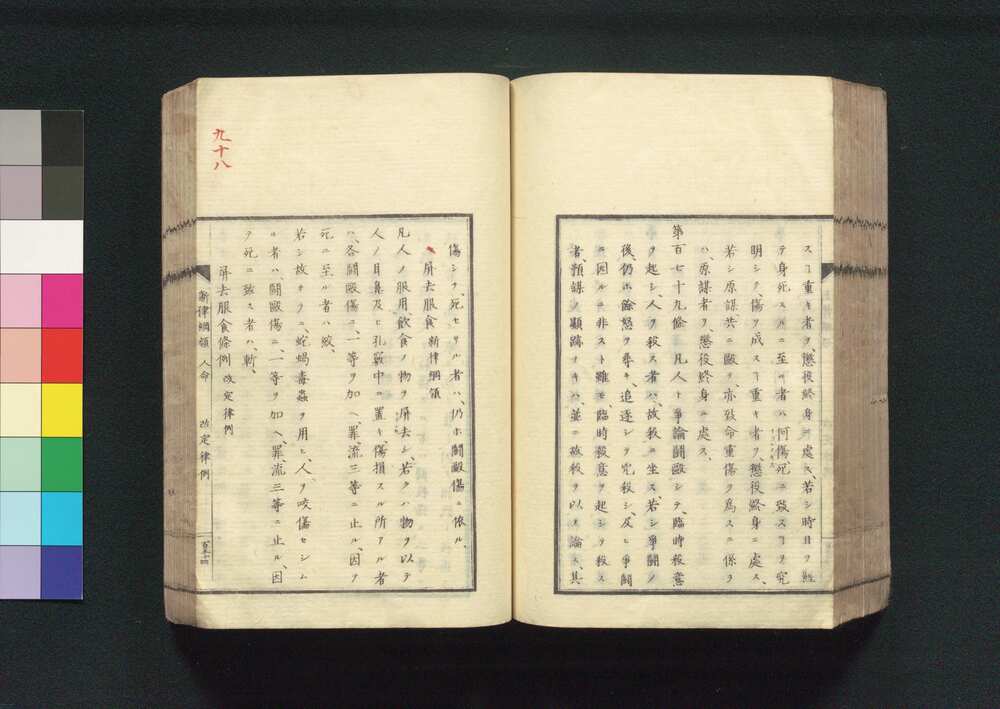 スヿ重キ者ヲ、懲役終身ニ處ス、若シ時日ヲ經
テ身死スルニ至ル者ハ、何傷死ニ致スヿヲ究
明シ、傷ヲ成スヿ重キ者ヲ、懲役終身ニ處ス、
若シ原謀共ニ毆ヲ亦致命重傷ヲ爲スニ係ラ
ハ、原謀者ヲ、懲役終身ニ處ス、
第百七十九條 凡人ト爭論鬪毆シテ、臨時殺意
ヲ起シ、人ヲ殺ス者ハ、故殺ニ坐ス、若シ爭鬪ノ
後、仍ホ餘怒ヲ尋キ、追逐シテ究殺シ、及ヒ爭鬪
ニ因ルニ非スト雖モ、臨時殺意ヲ起シテ殺ス
者、預謀ノ顯跡ナキハ、並ニ故殺ヲ以テ論ス、其
傷シテ、死セサル者ハ、仍ホ鬪毆傷ニ依ル、
屏去服食 新律綱領
凡人ノ服用、飲食ノ物ヲ屏去シ、若クハ物ヲ以テ
人ノ耳鼻及ヒ孔竅中ニ置キ、傷損スル所アル者
ハ、各鬪毆傷ニ、一等ヲ加ヘ、罪、流三等ニ止ル、因テ
死ニ至ル者ハ絞、
若シ故サラニ、蛇蝎毒蟲ヲ用ヒ、人ヲ咬傷セシム
ル者ハ、鬪毆傷ニ、一等ヲ加ヘ、罪、流三等ニ止ル、因
テ死ニ致ス者ハ、斬、
屏去服食條例 改定律例
新律綱領 人命 改定律例
九十八